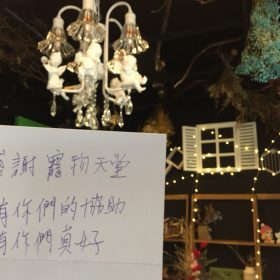 感謝寵物天堂
有你們的協助
有你們真好